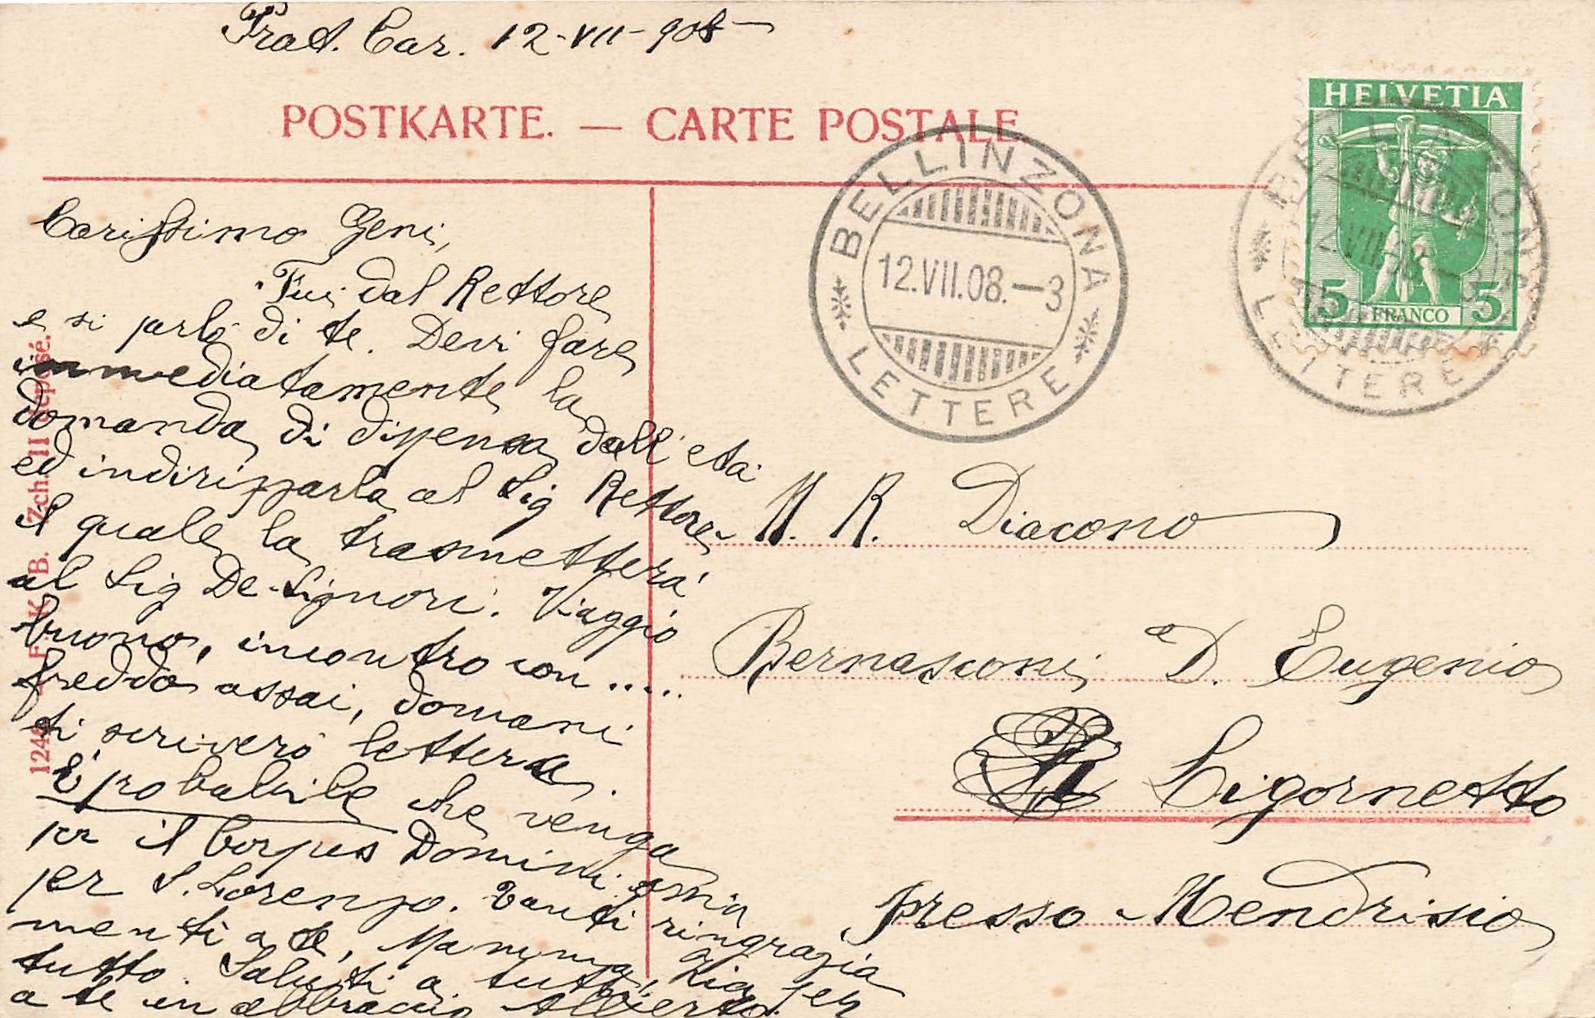 Prat. Car. 12-VII-908
POSTKARTE. — CARTE POSTALE
HELVETIA
5 FRANCO 5
BELLINZONA
12.VII.08.—3
LETTERE
BELLINZONA
12.VII.08.—3
LETTERE
Carissimo Geni,
Fui dal Rettore
e si parlò di te. Devi fare
immediatamente la
domanda di dispensa dall'età
ed indirizzarla al Sig Rettore
il quale la trasmetterà
al Sig De-Signori. Viaggio
buono, incontro con .....
freddo assai, domani
ti scriverò lettera.
È probabile che venga
per il Corpus Domini, ma
per S. Lorenzo. Tanti ringrazia
menti a te, Mamma, Zia per
tutto. Saluti a tutti,
a te in abbraccio Alberto.
M. R. Diacono
Bernasconi D. Eugenio
Ligornetto
presso Mendrisio
F. K. B. Zch. II déposé.